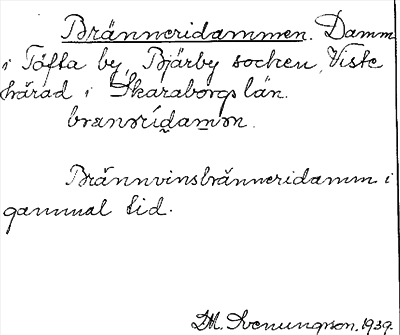 Bränneridammen. Damm
i Töfta by, Bjärby socken, Viste
härad i Skaraborgs län.
brænrìdamm.
Brännvinsbränneridamm i
gammal tid.
D.M. Svenungson. 1939.